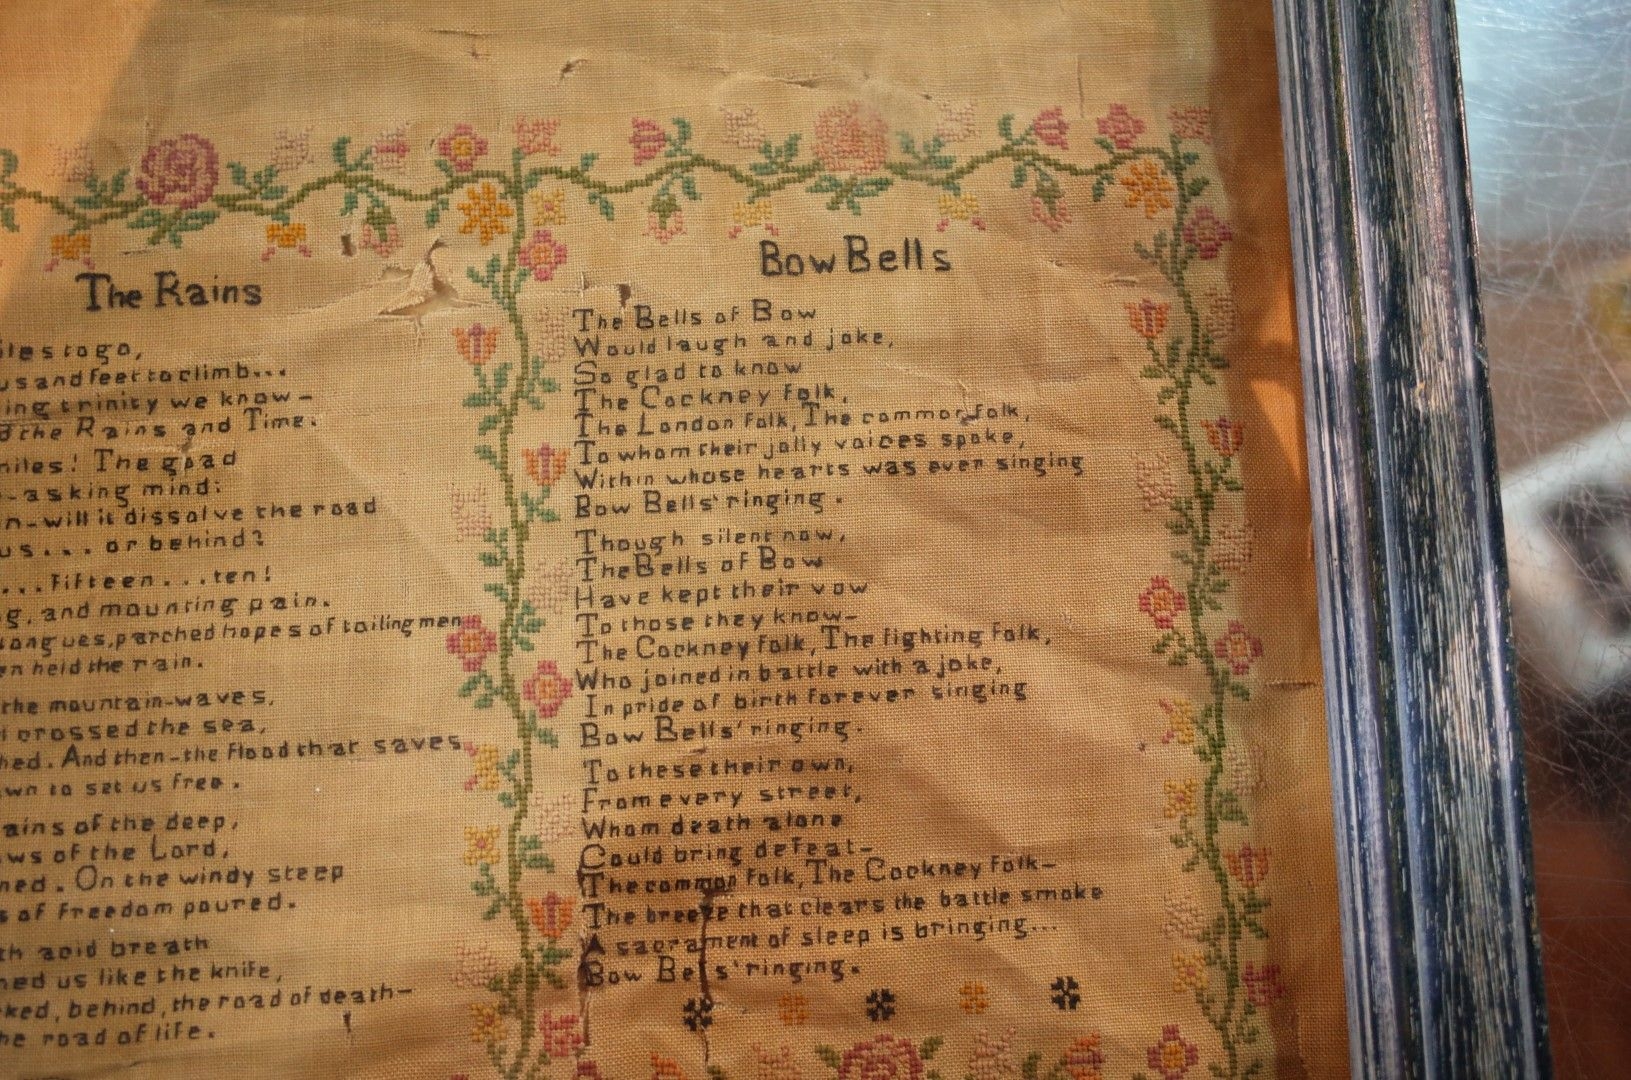 The Rains
to go,
and feet to climb...
trinity we know-
the Rains and Time.
The goad
-asking mind:
-will it dissolve the road
us... or behind?
...Fifteen...ten!
and mounting pain.
parched hopes of toiling men
held the rain.
the mountain-waves,
crossed the sea,
And then-the Flood that saves
to set us free.
of the deep,
of the Lord,
On the windy steep
of Freedom poured.
acid breath
us like the knife,
behind, the road of death-
road of life.
Bow Bells
The Bells of Bow
Would laugh and joke,
So glad to know
The Cockney Folk,
The London Folk, The common folk,
To whom their jolly voices spoke,
Within whose hearts was ever singing
Bow Bells' ringing.
Though silent now,
The Bells of Bow
Have kept their vow
To those they know-
The Cockney Folk, The fighting Folk,
Who joined in battle with a joke,
In pride of birth forever singing
Bow Bells' ringing.
To these their own,
From every street,
Whom death alone
Could bring defeat-
The common Folk, The Cockney Folk-
The breeze that clears the battle smoke
A sacrament of sleep is bringing...
Bow Bells' ringing.